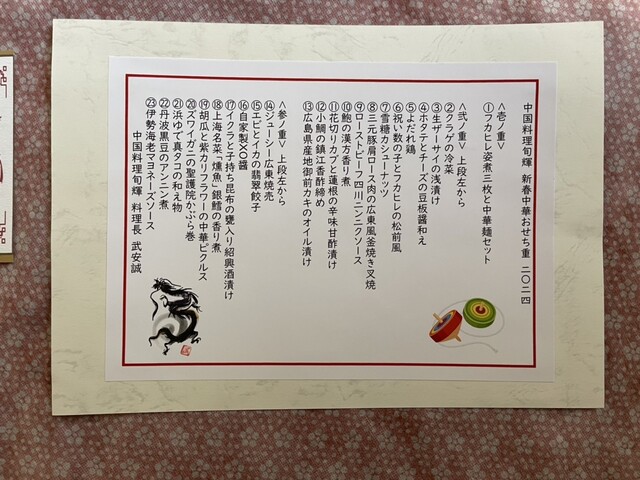 中国料理旬輝 新春中華おせち重 二〇二四
<壱ノ重>
①フカヒレ姿煮三枚と中華麺セット
<弐ノ重> 上段左から
②クラゲの冷菜
③生ザーサイの浅漬け
④ホタテとチーズの豆板醤和え
⑤よだれ鶏
⑥祝い数の子とフカヒレの松前風
⑦雪糖カシューナッツ
⑧三元豚肩ロース肉の広東風釜焼き叉焼
⑨ローストビーフ四川ニンニクソース
⑩鮑の漢方香り煮
⑪花切りカブと蓮根の辛味甘酢漬け
⑫小鯛の鎮江香酢締め
⑬広島県産地御前カキのオイル漬け
<参ノ重> 上段左から
⑭ジューシー広東焼売
⑮エビとイカの翡翠餃子
⑯自家製XO醤
⑰イクラと子持ち昆布の甕入り紹興酒漬け
⑱上海名菜「燻魚」銀鱈の香り煮
⑲胡瓜と紫カリフラワーの中華ピクルス
⑳ズワイガニの聖護院かぶら巻
㉑浜ゆで真タコの和え物
㉒丹波黒豆のアンニン煮
㉓伊勢海老マヨネーズソース
中国料理旬輝 料理長 武安誠